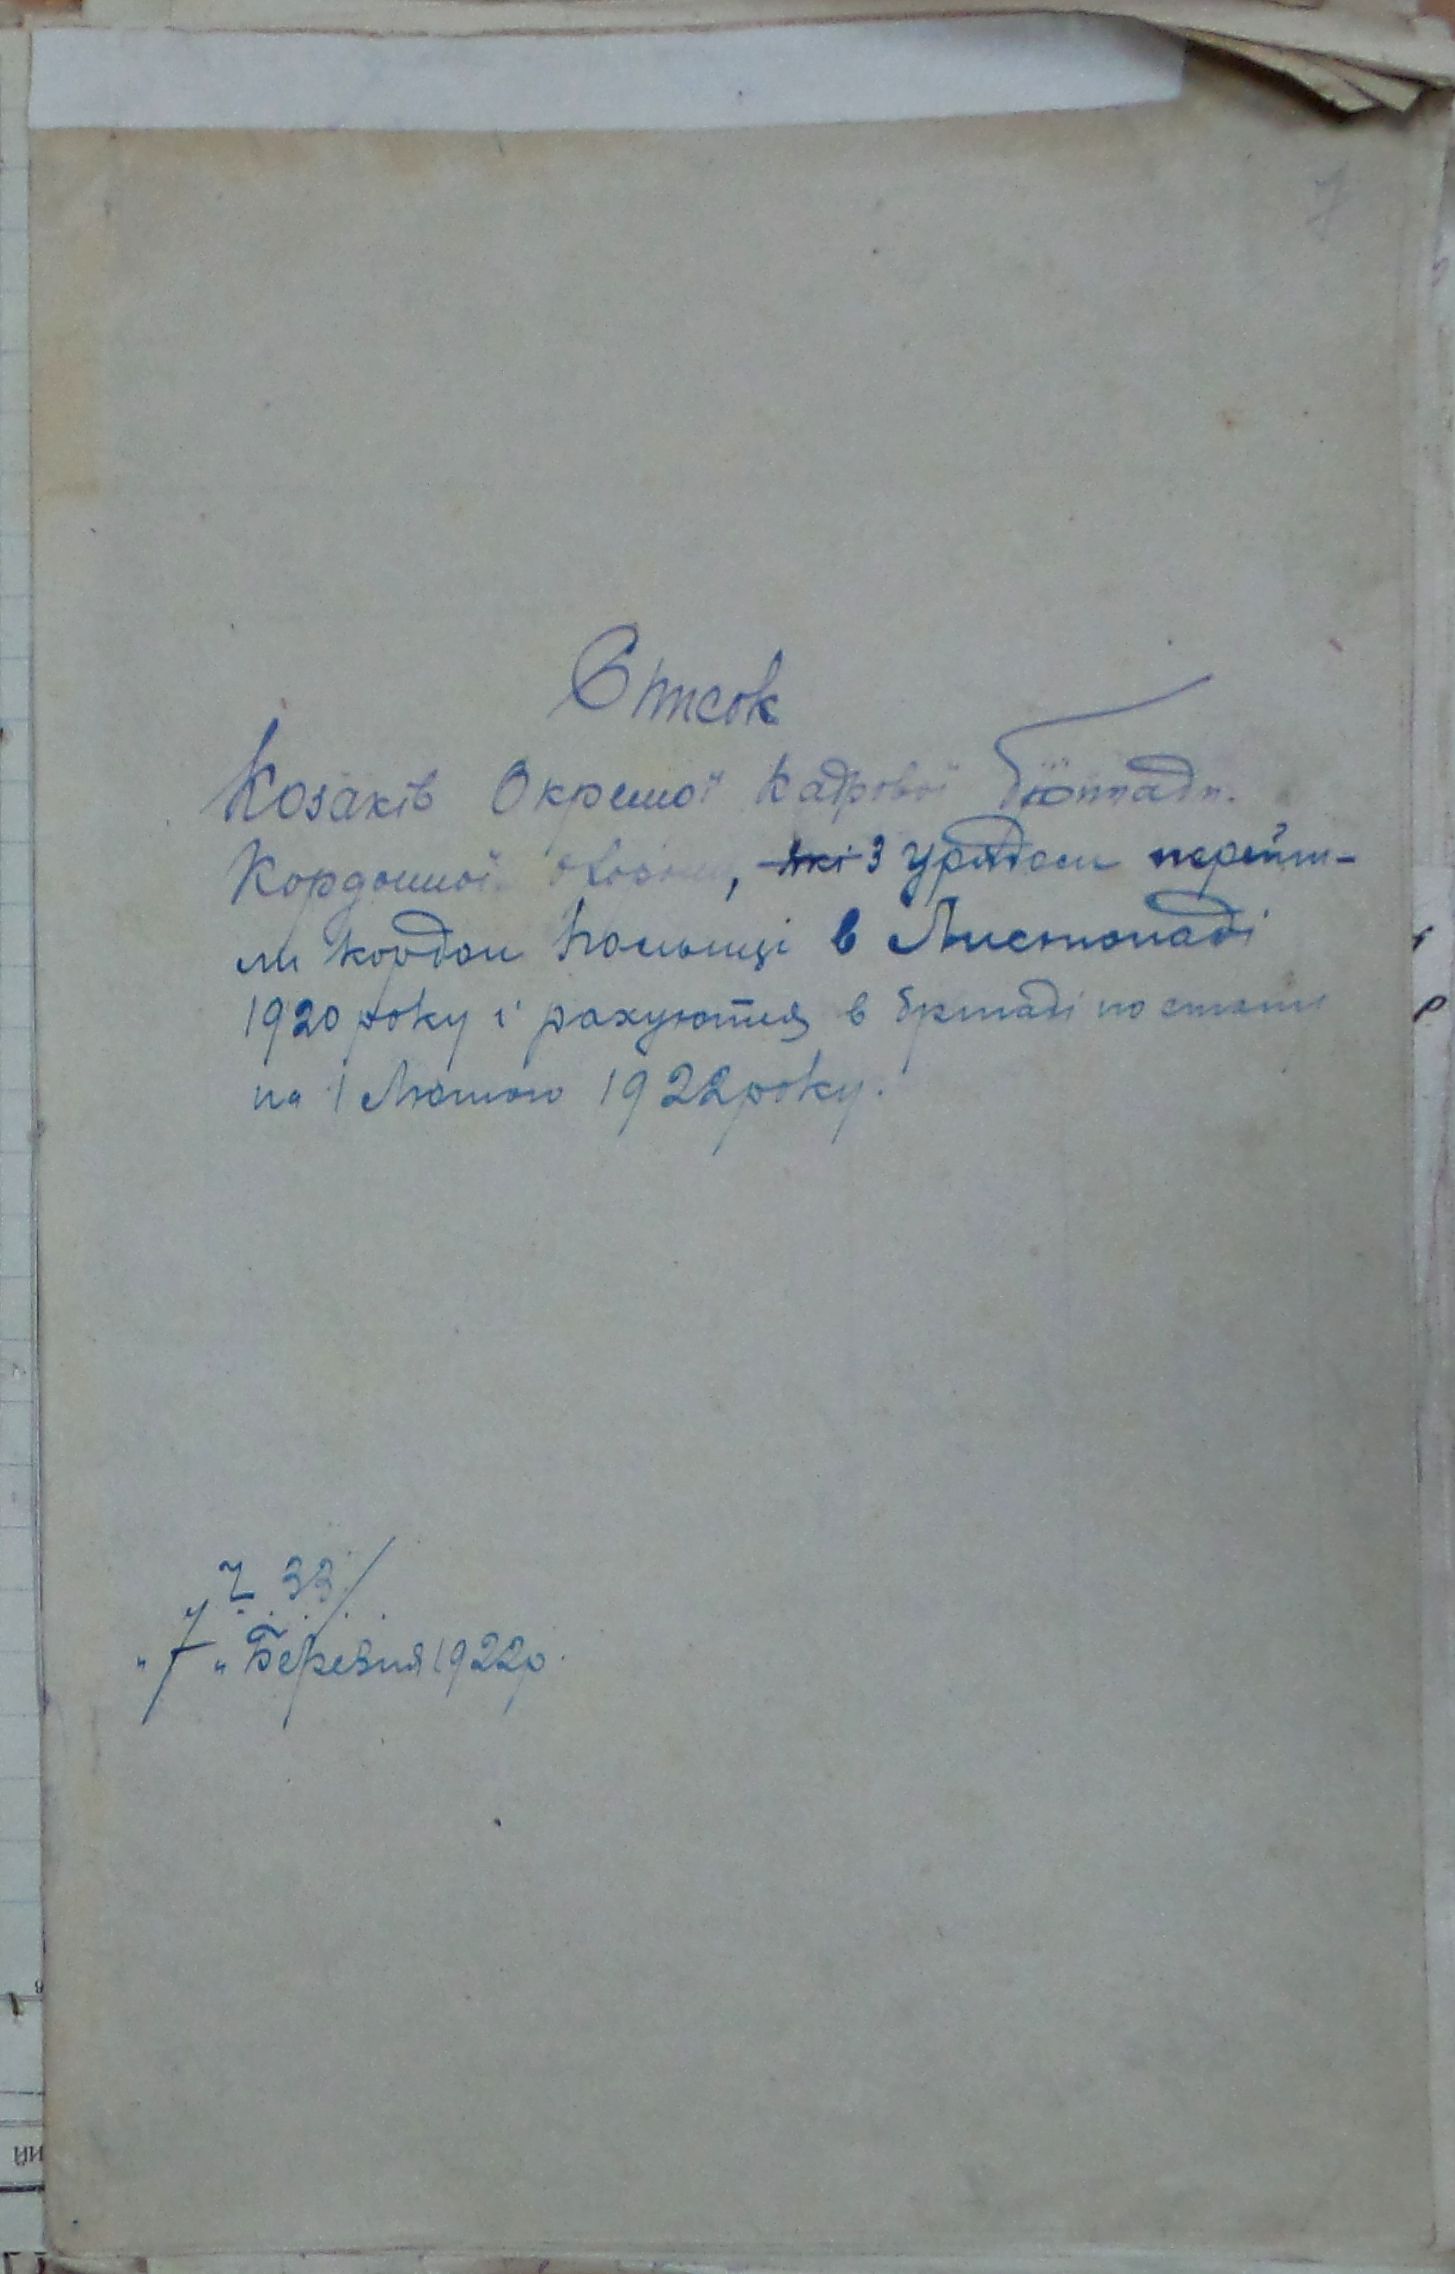 7
Спісок
Козаків Окремої Кадрової бригади
Кордонної охорони, які з урядом перейш-
ли кордон Польщі в Листопаді
1920 року і рахуются в бригаді по стану
на 1 Лютого 1922 року.
Ч. 33/
"7" Березня 1922 р.